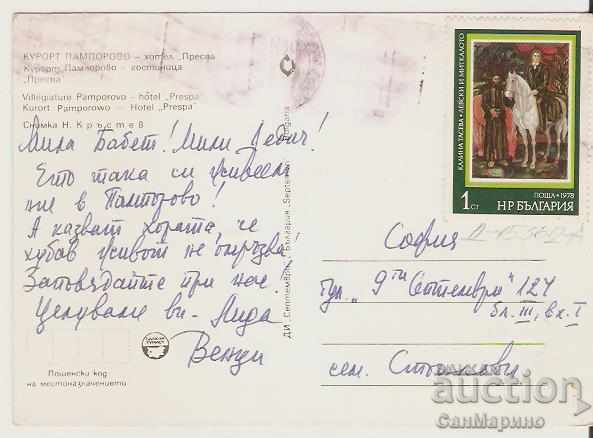 КУРОРТ ПАМПОРОВО – хотел „Преспа“
Курорт Пампорово – гостиница
„Преспа“
Villégiature Pamporovo – hôtel „Prespa“
Kurort Pamporowo – Hotel „Prespa“
Снимка Н. Кръстев
Мила Бабет! Мили
Ето така си живеем
ние в Пампорово!
А казват хората, че
хубав живот не омръзва!
Заповядайте при нас!
Целуваме ви – Лида
Венци
Пощенски код
на местоназначението
ДИ „Септември“, България „Septemvri“ Bulgaria
КАЛИНА ТАСЕВА • ЛЕВСКИ И МАТЕЯ
1 СТ
ПОЩА • 1978
НР БЪЛГАРИЯ
София
бул. „9ти Септември“ 124
бл. III, вх. I
сем. Стоянови
BALKAN
auction
СанМарино